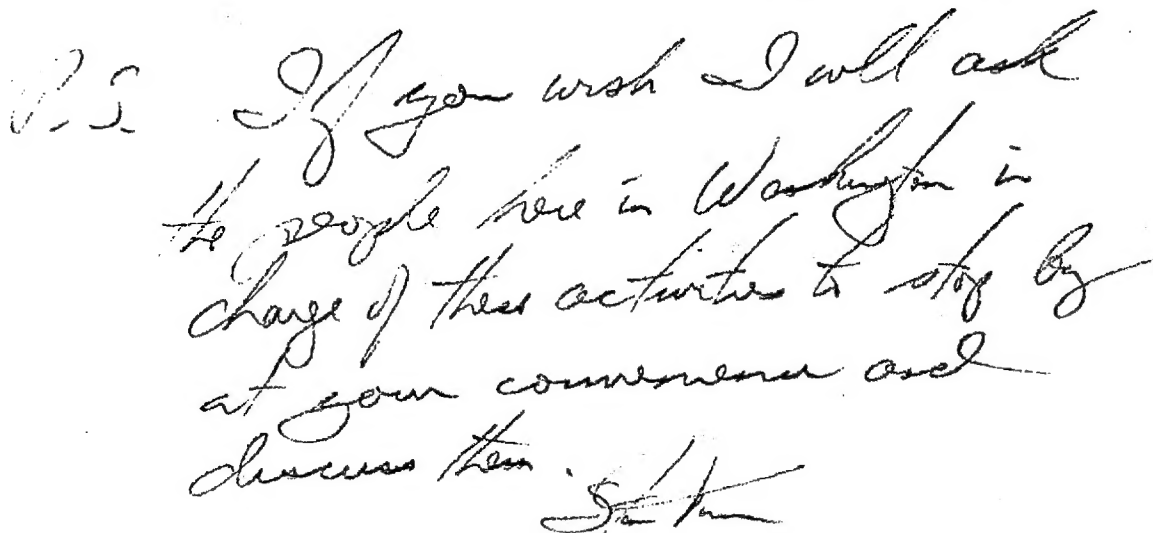 P.S. If you wish I will ask
the people here in Washington in
charge of these activities to stop by
at your convenience and
discuss them.